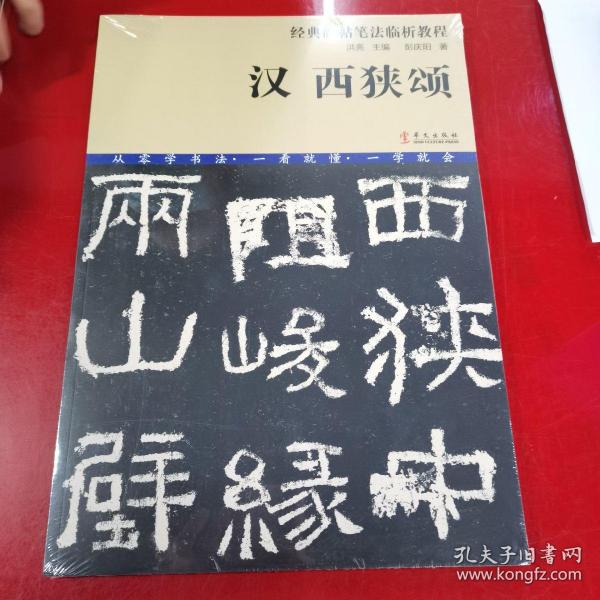 经典碑帖笔法临析教程
洪亮 主编 彭庆阳 著
汉 西狭颂
华文出版社
SINO-CULTURE PRESS
从零学书法·一看就懂·一学就会
西狹中
阻峻緣
兩山壁
孔夫子旧书网
www.kongfz.com